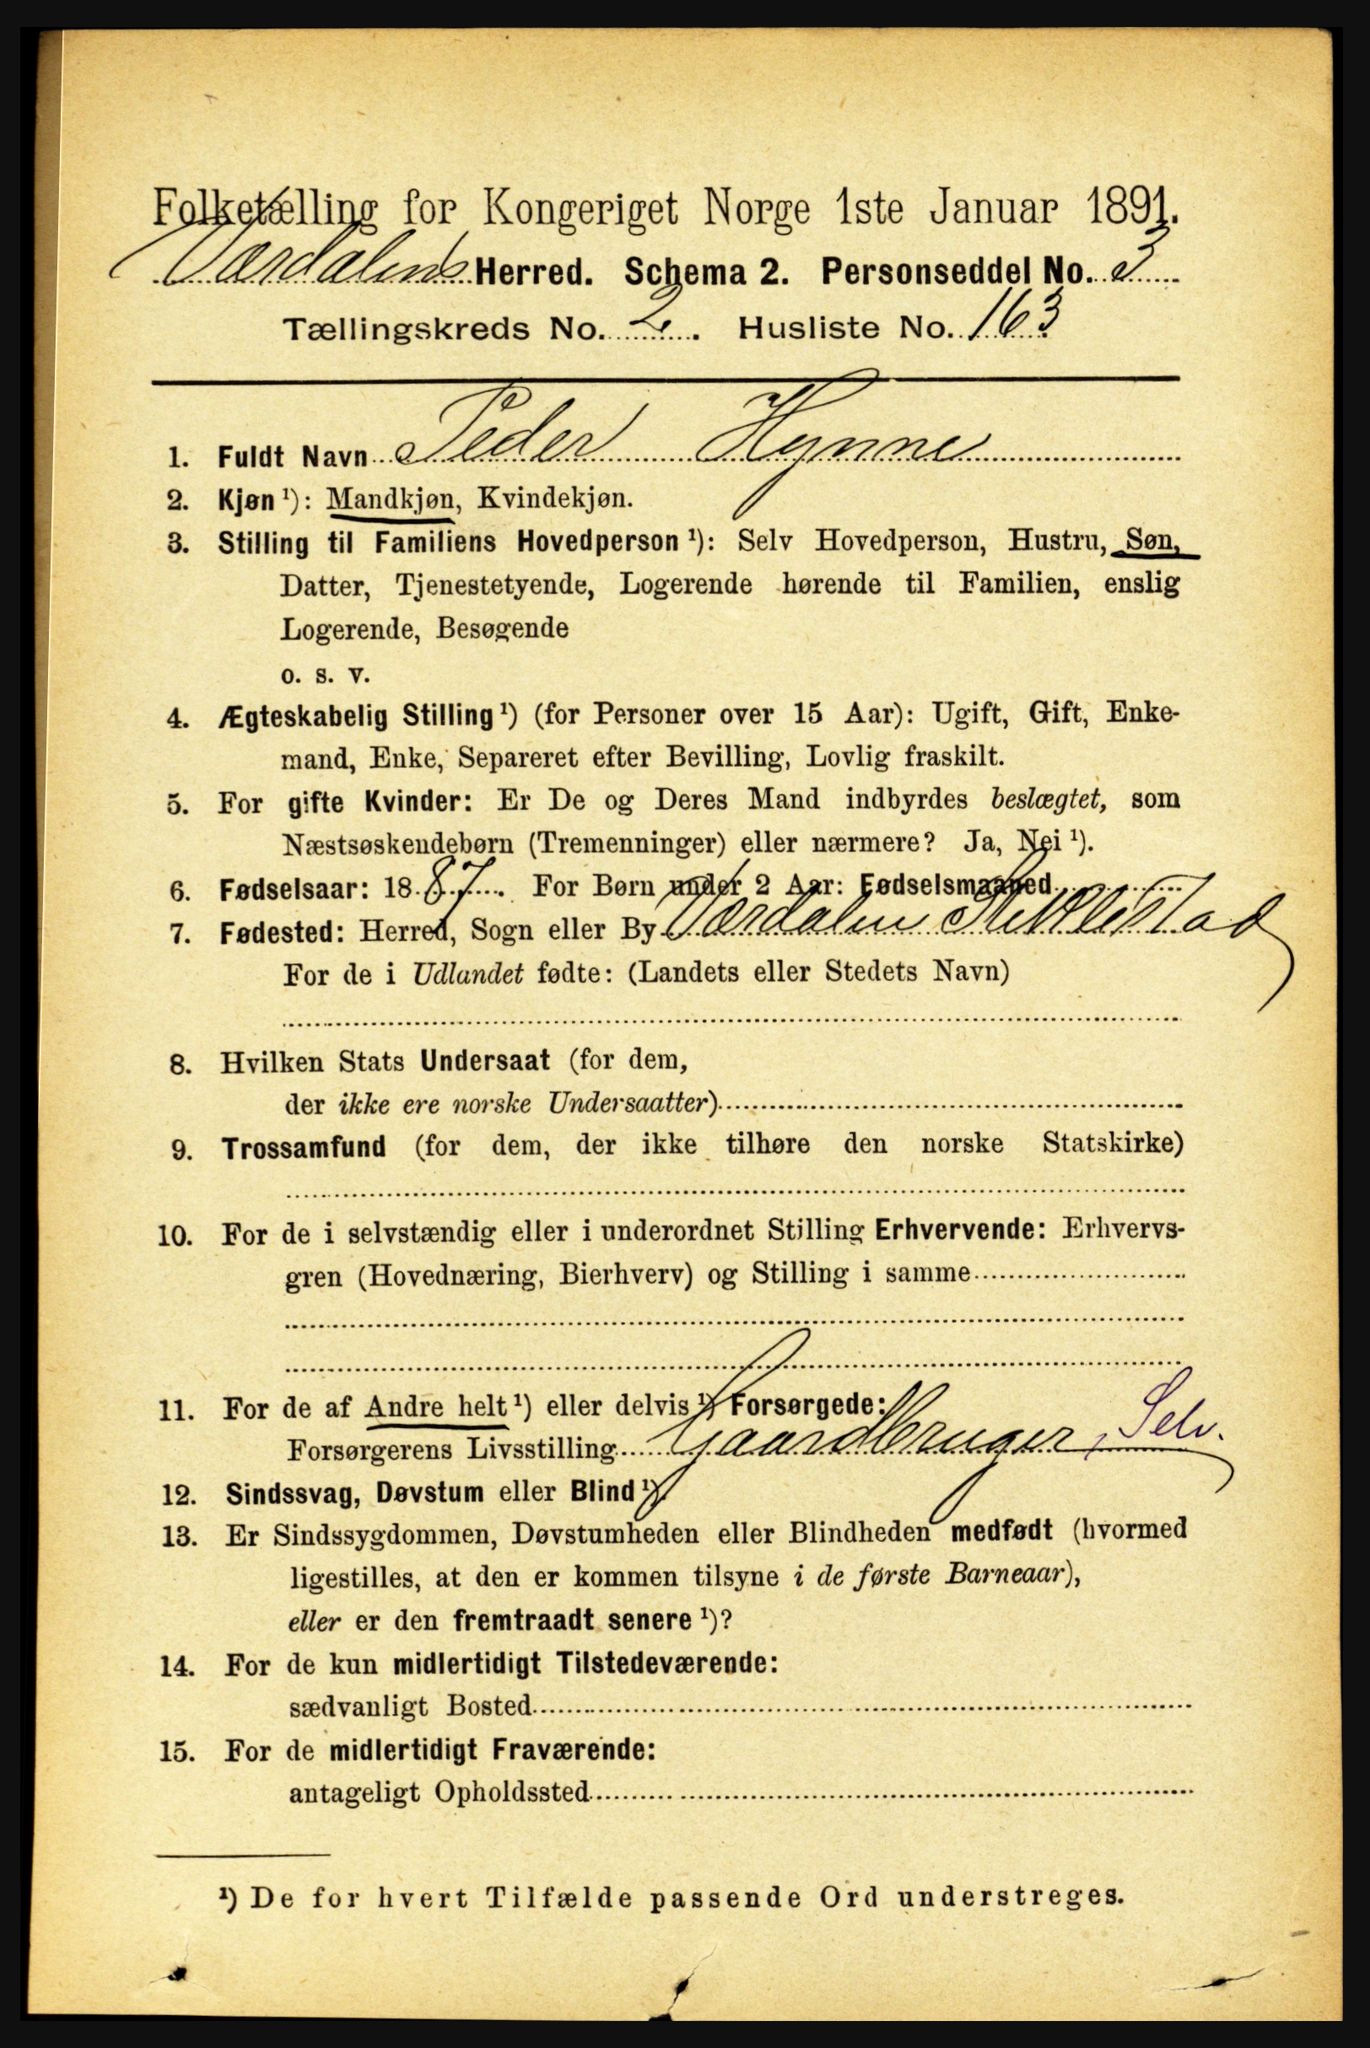 Folketælling for Kongeriget Norge 1ste Januar 1891.
Værdalens Herred. Schema 2. Personseddel No. 3
Tællingskreds No. 2. Husliste No. 163
1. Fuldt Navn Peder Hynne
2. Kjøn ¹): Mandkjøn, Kvindekjøn.
3. Stilling til Familiens Hovedperson ¹): Selv Hovedperson, Hustru, Søn,
Datter, Tjenestetyende, Logerende hørende til Familien, enslig
Logerende, Besøgende
o. s. v.
4. Ægteskabelig Stilling ¹) (for Personer over 15 Aar): Ugift, Gift, Enke-
mand, Enke, Separeret efter Bevilling, Lovlig fraskilt.
5. For gifte Kvinder: Er De og Deres Mand indbyrdes beslægtet, som
Næstsøskendebørn (Tremenninger) eller nærmere? Ja, Nei ¹).
6. Fødselsaar: 1887. For Børn under 2 Aar: Fødselsmaaned
7. Fødested: Herred, Sogn eller By Værdalen Stiklestad
For de i Udlandet fødte: (Landets eller Stedets Navn)
8. Hvilken Stats Undersaat (for dem,
der ikke ere norske Undersaatter)
9. Trossamfund (for dem, der ikke tilhøre den norske Statskirke)
10. For de i selvstændig eller i underordnet Stilling Erhvervende: Erhvervs-
gren (Hovednæring, Bierhverv) og Stilling i samme
11. For de af Andre helt ¹) eller delvis ¹) Forsørgede:
Forsørgerens Livsstilling Gaardbruger, Selv.
12. Sindssvag, Døvstum eller Blind ¹).
13. Er Sindssygdommen, Døvstumheden eller Blindheden medfødt (hvormed
ligestilles, at den er kommen tilsyne i de første Barneaar),
eller er den fremtraadt senere ¹)?
14. For de kun midlertidigt Tilstedeværende:
sædvanligt Bosted
15. For de midlertidigt Fraværende:
antageligt Opholdssted
¹) De for hvert Tilfælde passende Ord understreges.